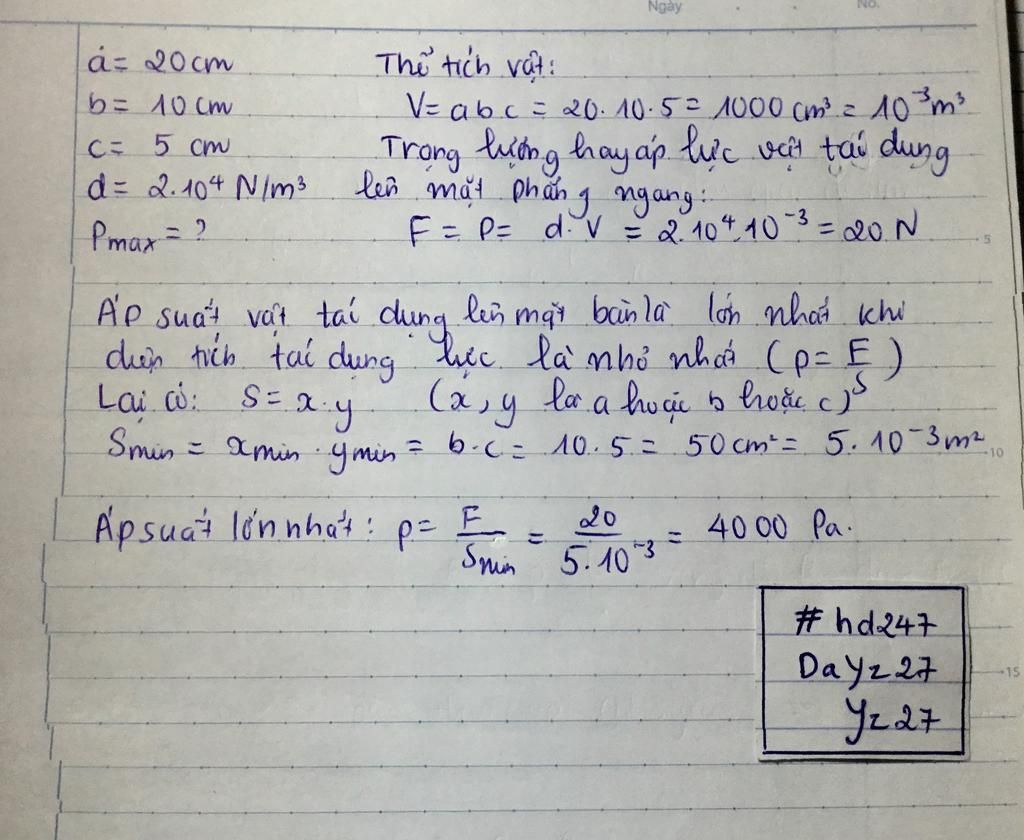 Ngày
No.
a = 20cm
b = 10 cm
c = 5 cm
d = 2.10⁴ N/m³
Pmax = ?
Thể tích vật:
V = a b c = 20. 10. 5 = 1000 cm³ = 10⁻³m³
Trọng lượng hay áp lực vật tại dụng
lên mặt phẳng ngang:
F = P = d. V = 2.10⁴.10⁻³ = 20 N
5
Áp suất vật tái dụng lên mặt bàn là lớn nhất khi
diện tích tái dụng lực là nhỏ nhất (p = F/S)
Lại có: S = x. y (x, y là a hoặc b hoặc c)
Smin = xmin . ymin = b. c = 10. 5 = 50 cm² = 5. 10⁻³ m²
10
Áp suất lớn nhất: p = F/Smin = 20/5.10⁻³ = 4000 Pa.
# hd247
DaYz27
Yz27
15